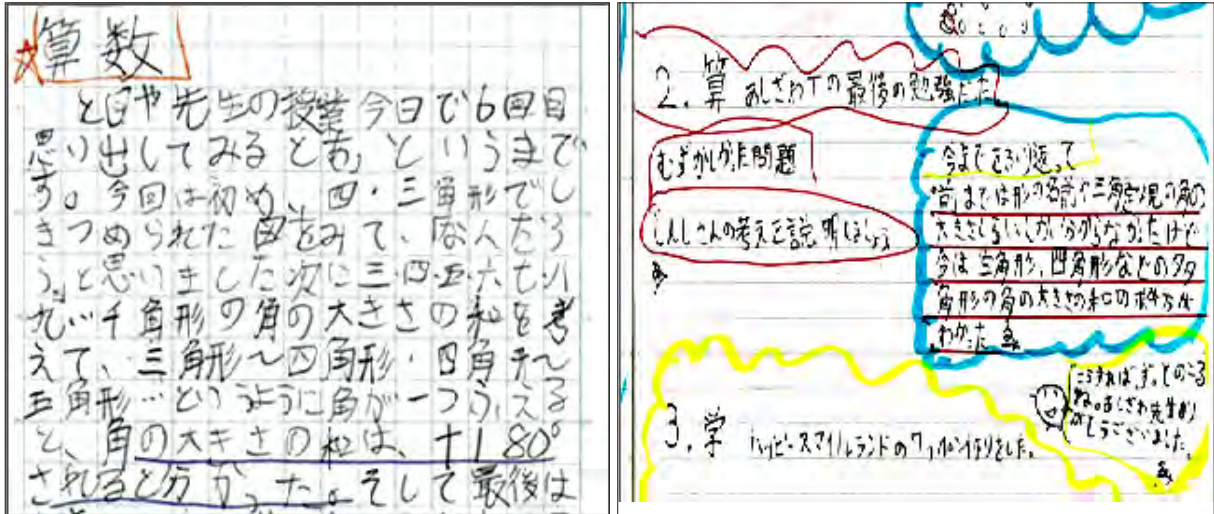 算数
先生の授業今日で6回目
思い出してみるとも、というまで
す。今回は初め、四・三角形でし
きつめられた図をみて、なんだろ
う。と思いました次に三・四・五・六・七・八
九…千角形の角の大きさの和を考
えて、三角形〜四角形・四角形〜
五角形…というように角が一つふえる
と、角の大きさの和は、+180°
されると分かった。そして最後は
2. 算 あしざわTの最後の勉強だった
むずかしかった問題
しんじさんの考えを説明しましょう
今までをふり返って
前までは形の名前や三角定規の角の
大きさくらいしか分からなかったけど
今は三角形、四角形などの多
角形の角の大きさの和の求め方が
わかった
こうすれば、ずっとのこる
ね。あしざわ先生あり
がとうございました。
3. 学 ハッピースマイルランドの